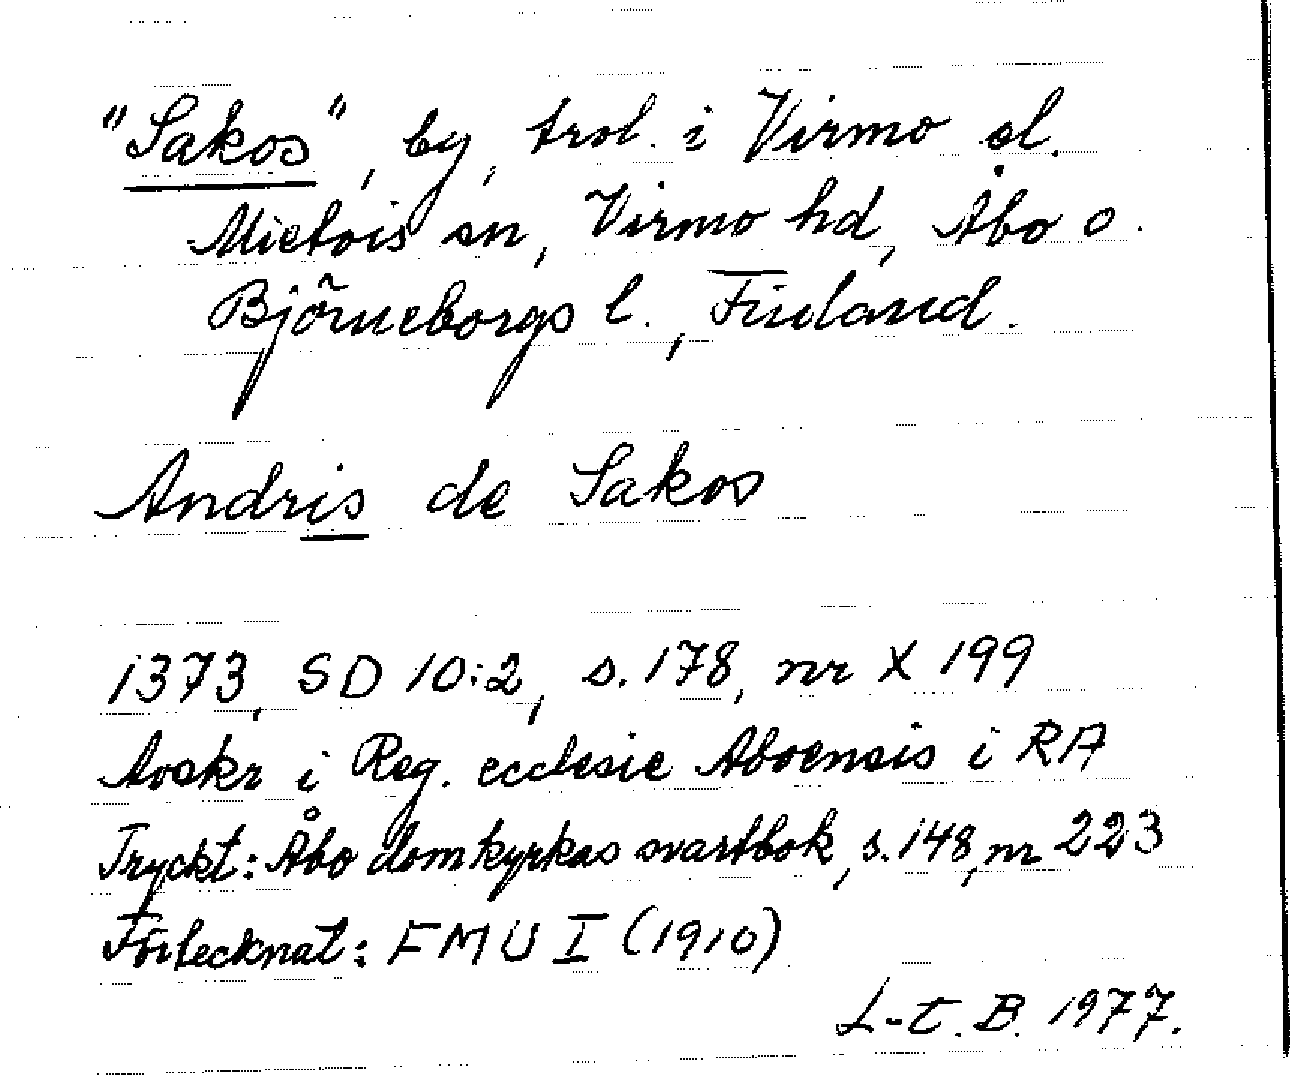 "Sakos", by, trol. i Virmo el.
Mietois sn, Virmo hd, Åbo o.
Björneborgs l., Finland.
Andris de Sakos
1373, SD 10:2, s. 178, nr X 199
Avskr i Reg. ecclesie Aboensis i RA
Tryckt: Åbo domkyrkas svartbok, s. 148, nr 223
Förtecknat: FMU I (1910)
L-E. B. 1977.